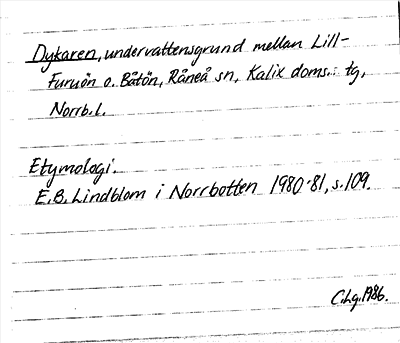 Dykaren, undervattensgrund mellan Lill-
Furuön o. Båtön, Råneå sn, Kalix doms.: tg,
Norrb. l.
Etymologi.
E.B. Lindblom i Norrbotten 1980-81, s. 109.
C.Lg. 1986.